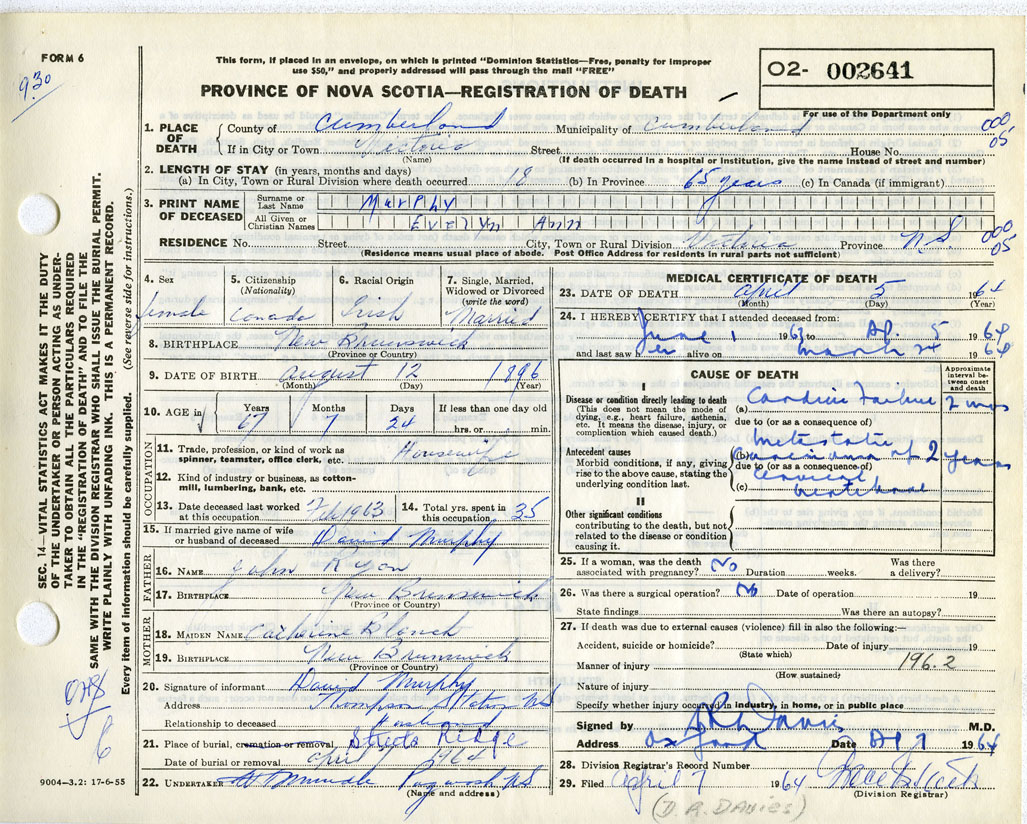 FORM 6
9.30
This form, if placed in an envelope, on which is printed "Dominion Statistics—Free, penalty for improper
use $50," and properly addressed will pass through the mail "FREE"
PROVINCE OF NOVA SCOTIA—REGISTRATION OF DEATH
O2- 002641
For use of the Department only
1. PLACE OF DEATH { County of Cumberland Municipality of Cumberland 000
If in City or Town Victoria Street House No. 05
(Name) (If death occurred in a hospital or institution, give the name instead of street and number)
2. LENGTH OF STAY (in years, months and days)
(a) In City, Town or Rural Division where death occurred 18 (b) In Province 65 years (c) In Canada (if immigrant)
3. PRINT NAME OF DECEASED { Surname or Last Name Murphy
All Given or Christian Names Evelyn Ann
RESIDENCE No. Street City, Town or Rural Division Victoria Province N.S. 000
(Residence means usual place of abode. Post Office Address for residents in rural parts not sufficient) 05
4. Sex 5. Citizenship (Nationality) 6. Racial Origin 7. Single, Married, Widowed or Divorced (write the word)
female Canada Irish Married
8. BIRTHPLACE New Brunswick
(Province or Country)
9. DATE OF BIRTH August 12 1896
(Month) (Day) (Year)
10. AGE in Years Months Days If less than one day old
67 7 24 hrs. or min.
OCCUPATION
11. Trade, profession, or kind of work as Housewife
spinner, teamster, office clerk, etc.
12. Kind of industry or business, as cotton-
mill, lumbering, bank, etc.
13. Date deceased last worked at this occupation Feb 1963 14. Total yrs. spent in this occupation 35
15. If married give name of wife
or husband of deceased David Murphy
FATHER
16. NAME John Ryan
17. BIRTHPLACE New Brunswick
(Province or Country)
MOTHER
18. MAIDEN NAME Catherine
19. BIRTHPLACE New Brunswick
(Province or Country)
20. Signature of informant David Murphy
Address Thompson Station NS
Relationship to deceased Husband
21. Place of burial, cremation or removal Streets Ridge
Date of burial or removal April 7 1964
22. UNDERTAKER Pugwash NS
(Name and address)
MEDICAL CERTIFICATE OF DEATH
23. DATE OF DEATH April 5 1964
(Month) (Day) (Year)
24. I HEREBY CERTIFY that I attended deceased from:
June 1 1963 to Ap. 5 1964
and last saw her alive on March 24 1964
CAUSE OF DEATH
Approximate interval between onset and death
I
Disease or condition directly leading to death
(This does not mean the mode of dying, e.g., heart failure, asthenia, etc. It means the disease, injury, or complication which caused death.)
(a) Cardiac Failure 2 mos
due to (or as a consequence of)
Antecedent causes
Morbid conditions, if any, giving rise to the above cause, stating the underlying condition last.
Metastatic
(b) carcinoma of 2 years
due to (or as a consequence of)
(c) cervical
vertebrae
II
Other significant conditions
contributing to the death, but not related to the disease or condition causing it.
25. If a woman, was the death associated with pregnancy? No Duration weeks. Was there a delivery?
26. Was there a surgical operation? No Date of operation 19
State findings Was there an autopsy?
27. If death was due to external causes (violence) fill in also the following:—
Accident, suicide or homicide? Date of injury 19
(State which)
Manner of injury 196.2
(How sustained)
Nature of injury
Specify whether injury occurred in industry, in home, or in public place
Signed by D R Davies M.D.
Address Oxford Date Ap 7 1964
28. Division Registrar's Record Number
29. Filed April 7 1964
(Division Registrar)
(D.R. DAVIES)
SEC. 14—VITAL STATISTICS ACT MAKES IT THE DUTY
OF THE UNDERTAKER OR PERSON ACTING AS UNDER-
TAKER TO OBTAIN ALL THE PARTICULARS REQUIRED
IN THE "REGISTRATION OF DEATH" AND TO FILE THE
SAME WITH THE DIVISION REGISTRAR WHO SHALL ISSUE THE BURIAL PERMIT.
WRITE PLAINLY WITH UNFADING INK. THIS IS A PERMANENT RECORD.
Every item of information should be carefully supplied. (See reverse side for instructions.)
6
9004—3.2: 17-6-55